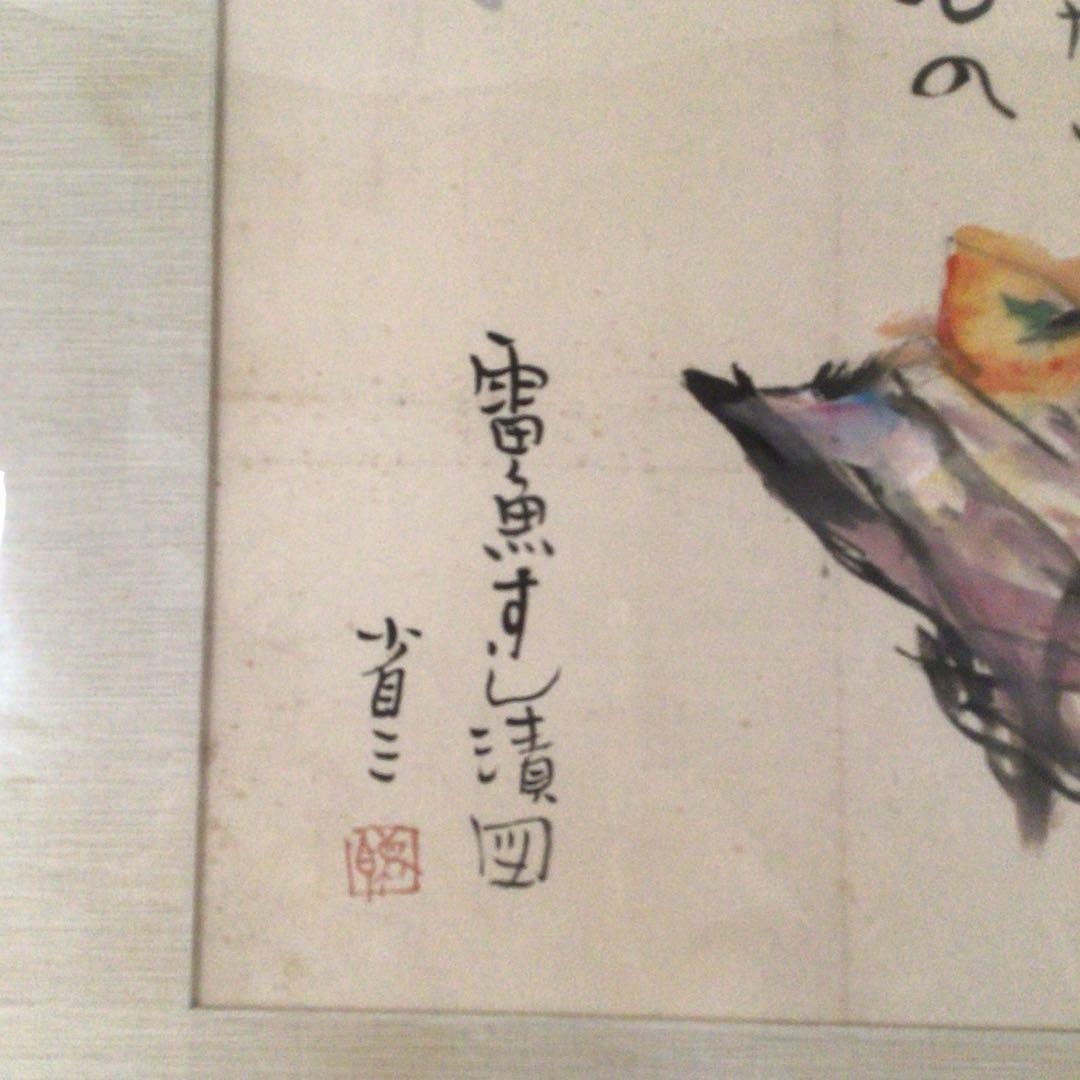 の
雷魚すし漬図
省三